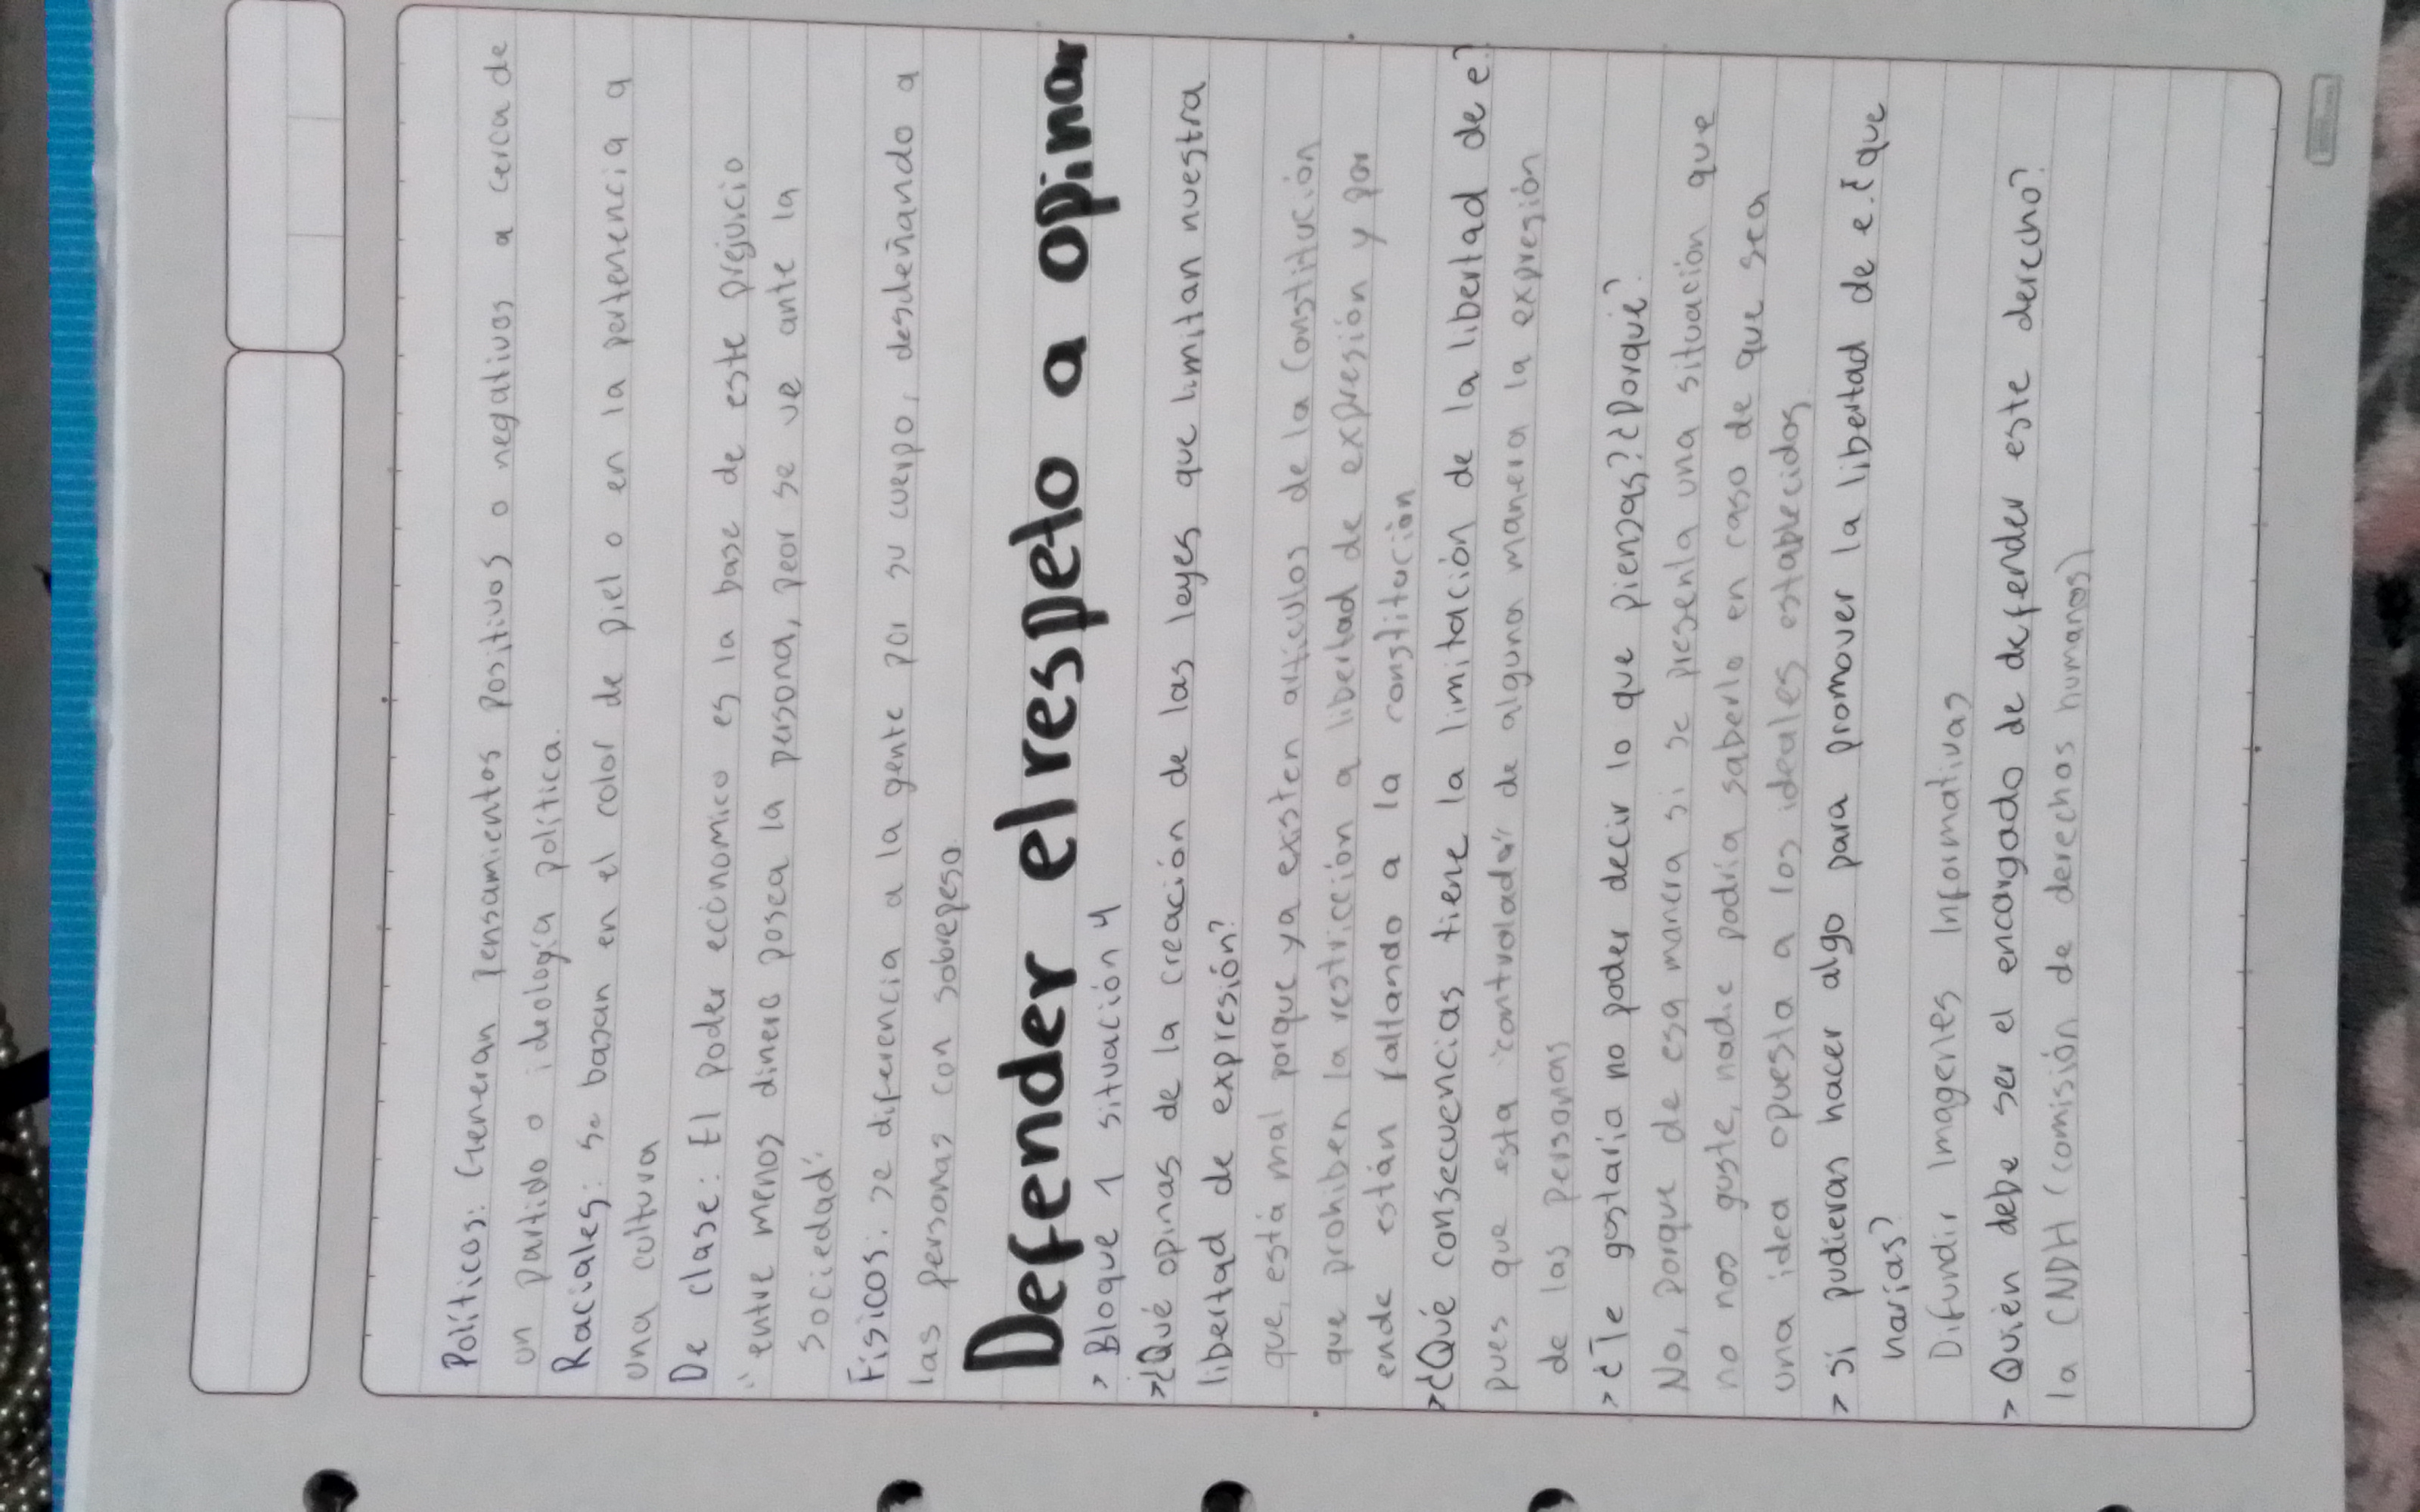 Políticos: Generan pensamientos positivos o negativos a cerca de
un partido o ideología política.
Raciales: se basan en el color de piel o en la pertenencia a
una cultura
De clase: El poder económico es la base de este prejuicio
"entre menos dinero posea la persona, peor se ve ante la
sociedad".
Físicos: se diferencia a la gente por su cuerpo, desdeñando a
las personas con sobrepeso.
Defender el respeto a opinar
> Bloque 1 situación 4
>¿Qué opinas de la creación de las leyes que limitan nuestra
libertad de expresión?
que, está mal porque ya existen artículos de la Constitución
que prohiben la restricción a libertad de expresión y por
ende están faltando a la constitución
>¿Qué consecuencias tiene la limitación de la libertad de e?
pues que esta "controlada" de alguna manera la expresión
de las personas
> ¿Te gustaría no poder decir lo que piensas?¿Porqué?
No, porque de esa manera si se presenta una situación que
no nos guste, nadie podría saberlo en caso de que sea
una idea opuesta a los ideales establecidos
> si pudieras hacer algo para promover la libertad de e.¿que
harías?
Difundir Imagenes Informativas
> Quién debe ser el encargado de defender este derecho?
la CNDH (comisión de derechos humanos)